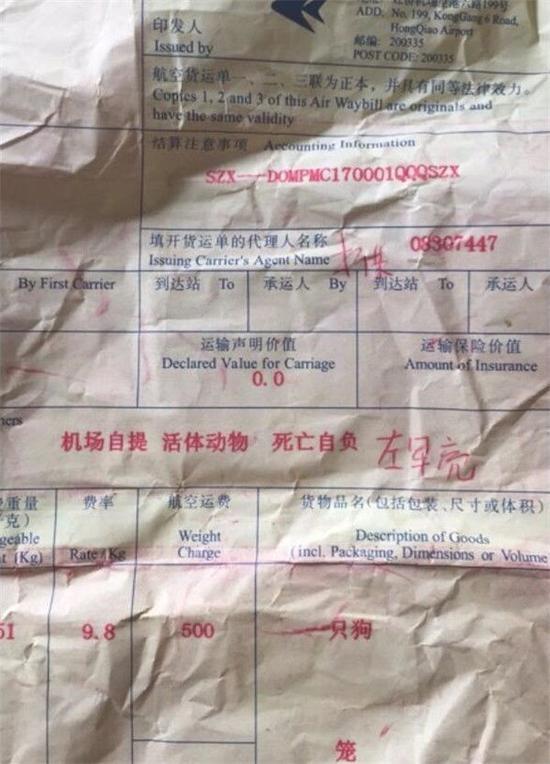 路199号
ADD, No, 199, KongGang 6 Road,
印发人
HongQiao Airport
Issued by
邮编: 200335
POST CODE: 200335
航空货运单一、二、三联为正本，并具有同等法律效力。
Copies 1, 2 and 3 of this Air Waybill are originals and
have the same validity
结算注意事项 Accounting Information
SZX---DOMPMC170001QQQSZX
填开货运单的代理人名称 08307447
Issuing Carrier's Agent Name
By First Carrier 到达站 To 承运人 By 到达站 To 承运人
运输声明价值 运输保险价值
Declared Value for Carriage Amount of Insurance
0.0
机场自提 活体动物 死亡自负
重量 费率 航空运费 货物品名(包括包装、尺寸或体积)
克)
Weight Description of Goods
(Kg) Rate/Kg Charge (incl. Packaging, Dimensions or Volume
51 9.8 500 一只狗
笼